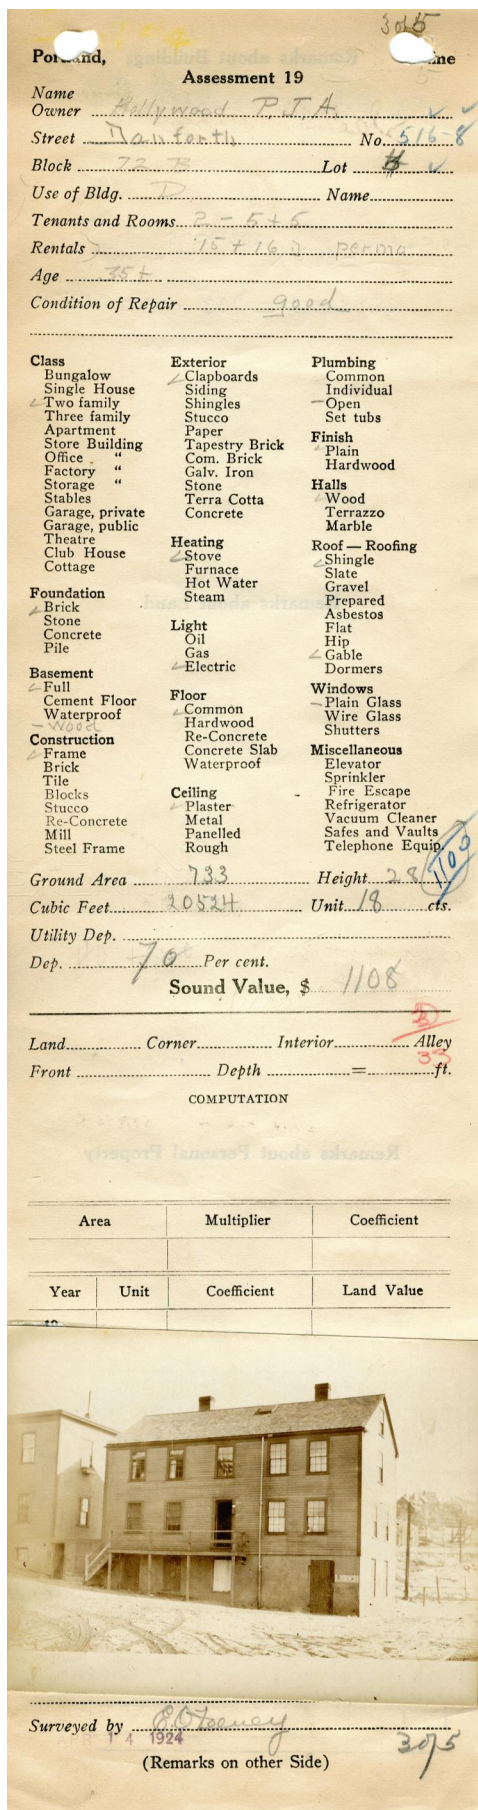 3 of 5
Portland, Maine
Assessment 19
Name
Owner Hollywood P.J.A.
Street Danforth No. 516-8
Block 72 B Lot
Use of Bldg. D Name
Tenants and Rooms 2 - 5 + 5
Rentals 15 + 16 per mo
Age 35+
Condition of Repair good
Class
Bungalow
Single House
Two family
Three family
Apartment
Store Building
Office "
Factory "
Storage "
Stables
Garage, private
Garage, public
Theatre
Club House
Cottage
Foundation
Brick
Stone
Concrete
Pile
Basement
Full
Cement Floor
Waterproof
- Wood
Construction
Frame
Brick
Tile
Blocks
Stucco
Re-Concrete
Mill
Steel Frame
Exterior
Clapboards
Siding
Shingles
Stucco
Paper
Tapestry Brick
Com. Brick
Galv. Iron
Stone
Terra Cotta
Concrete
Heating
Stove
Furnace
Hot Water
Steam
Light
Oil
Gas
Electric
Floor
Common
Hardwood
Re-Concrete
Concrete Slab
Waterproof
Ceiling
Plaster
Metal
Panelled
Rough
Plumbing
Common
Individual
Open
Set tubs
Finish
Plain
Hardwood
Halls
Wood
Terrazzo
Marble
Roof — Roofing
Shingle
Slate
Gravel
Prepared
Asbestos
Flat
Hip
Gable
Dormers
Windows
Plain Glass
Wire Glass
Shutters
Miscellaneous
Elevator
Sprinkler
Fire Escape
Refrigerator
Vacuum Cleaner
Safes and Vaults
Telephone Equip.
1100
Ground Area 733 Height 28
Cubic Feet 20524 Unit 18 cts.
Utility Dep.
Dep. 70 Per cent.
Sound Value, $ 1108
Land Corner Interior Alley
33
Front Depth = ft.
COMPUTATION
Area Multiplier Coefficient
Year Unit Coefficient Land Value
19
LUNCH
Surveyed by E.O. Feeney
APR 14 1924
3 of 5
(Remarks on other Side)